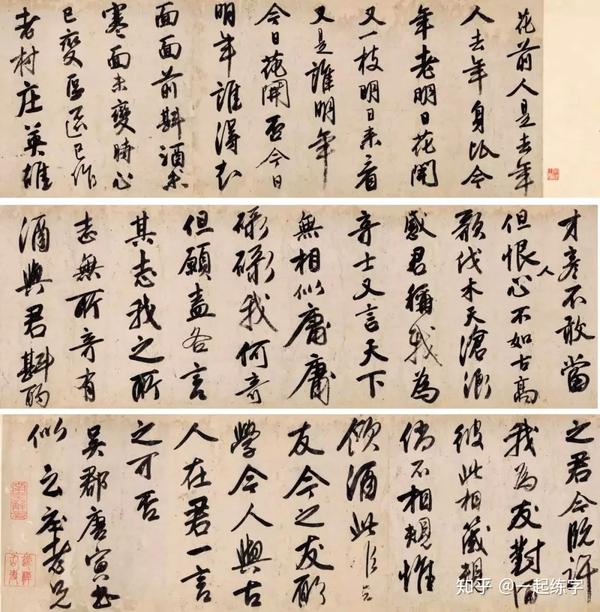 花前人是去年
人去年身比今
年老明日花開
又一枝明日來看
又是誰明年
今日花開否今日
明年誰得知
面面前斟酒未
寒面未變時心
已變區區已作
老村庄英雄
才彥不敢當
但恨人心不如古高
歌伐木天滄浪
感君稱我為
奇士又言天下
無相似庸庸
碌碌我何奇
但願盍各言
其志我之所
志無所奇有
酒與君斟酌
之君今既許
我為友對面
彼此相箴規
倘不相規惟
飲酒此
友今之友所
學今人與古
人在君一言
之可否
吳郡唐寅書
似老兄
知乎 @一起练字